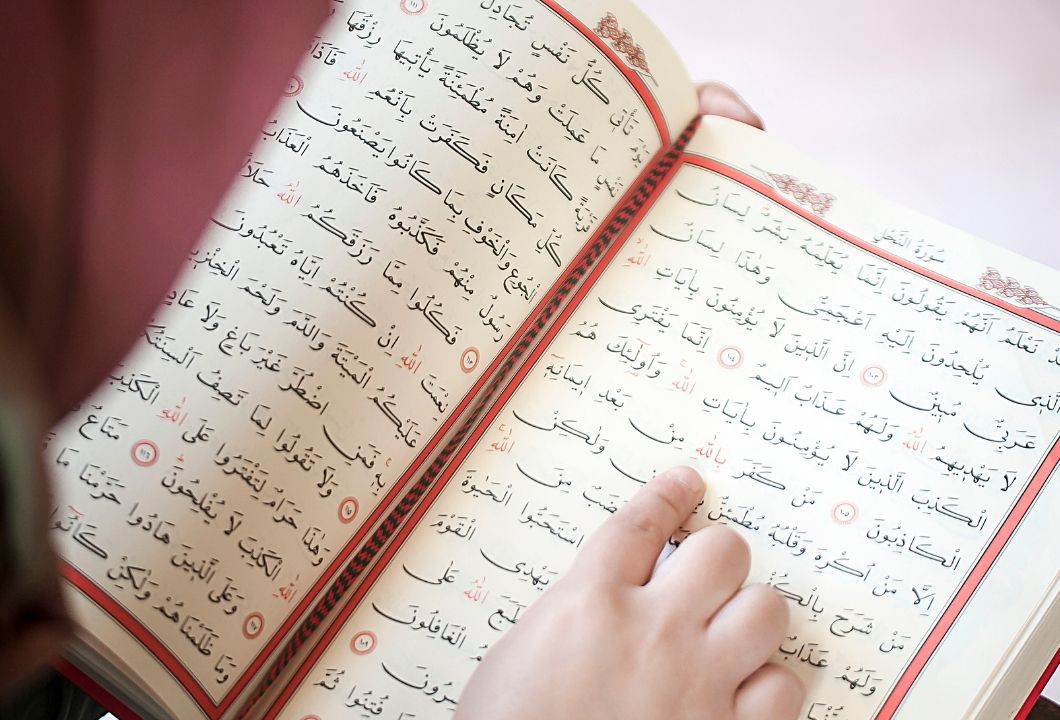 سُورَةُ النَّحْلِ
نَعْلَمُ اَنَّهُمْ يَقُولُونَ اِنَّمَا يُعَلِّمُهُ بَشَرٌ لِسَانُ
الَّذٖى يُلْحِدُونَ اِلَيْهِ اَعْجَمِىٌّ وَهٰذَا لِسَانٌ
عَرَبِىٌّ مُبٖينٌ ١٠٣ اِنَّ الَّذٖينَ لَا يُؤْمِنُونَ بِاٰيَاتِ اللّٰهِ
لَا يَهْدٖيهِمُ اللّٰهُ وَلَهُمْ عَذَابٌ اَلٖيمٌ ١٠٤ اِنَّمَا يَفْتَرِى
الْكَذِبَ الَّذٖينَ لَا يُؤْمِنُونَ بِاٰيَاتِ اللّٰهِ وَاُولٰئِكَ هُمُ
الْكَاذِبُونَ ١٠٥ مَنْ كَفَرَ بِاللّٰهِ مِنْ بَعْدِ اٖيمَانِهٖ
اِلَّا مَنْ اُكْرِهَ وَقَلْبُهُ مُطْمَئِنٌّ وَلٰكِنْ
مَنْ شَرَحَ مِنَ اللّٰهِ
وَلَهُمْ عَذَابٌ اسْتَحَبُّوا الْحَيٰوةَ
يَهْدِى الْقَوْمَ
طَبَعَ اللّٰهُ عَلٰى
الْغَافِلُونَ ١٠٨
فُتِنُوا ثُمَّ
يَوْمَ تَأْتٖى كُلُّ نَفْسٍ تُجَادِلُ
نَفْسٍ مَا عَمِلَتْ وَهُمْ لَا يُظْلَمُونَ ١١١
قَرْيَةً كَانَتْ اٰمِنَةً مُطْمَئِنَّةً يَأْتٖيهَا رِزْقُهَا
كُلِّ مَكَانٍ فَكَفَرَتْ بِاَنْعُمِ اللّٰهِ
الْجُوعِ وَالْخَوْفِ بِمَا كَانُوا يَصْنَعُونَ
رَسُولٌ مِنْهُمْ فَكَذَّبُوهُ فَاَخَذَهُمُ الْعَذَابُ
١١٣ فَكُلُوا مِمَّا رَزَقَكُمُ اللّٰهُ
نِعْمَتَ اللّٰهِ اِنْ كُنْتُمْ اِيَّاهُ تَعْبُدُونَ
عَلَيْكُمُ الْمَيْتَةَ وَالدَّمَ وَلَحْمَ الْخِنْزٖيرِ
بِهٖ فَمَنِ اضْطُرَّ غَيْرَ بَاغٍ وَلَا عَادٍ
١١٥ وَلَا تَقُولُوا لِمَا تَصِفُ
وَهٰذَا حَرَامٌ لِتَفْتَرُوا عَلَى اللّٰهِ الْكَذِبَ
اللّٰهِ الْكَذِبَ لَا يُفْلِحُونَ ١١٦ مَتَاعٌ
١١٧ وَعَلَى الَّذٖينَ هَادُوا حَرَّمْنَا مَا
وَمَا ظَلَمْنَاهُمْ وَلٰكِنْ كَانُوا